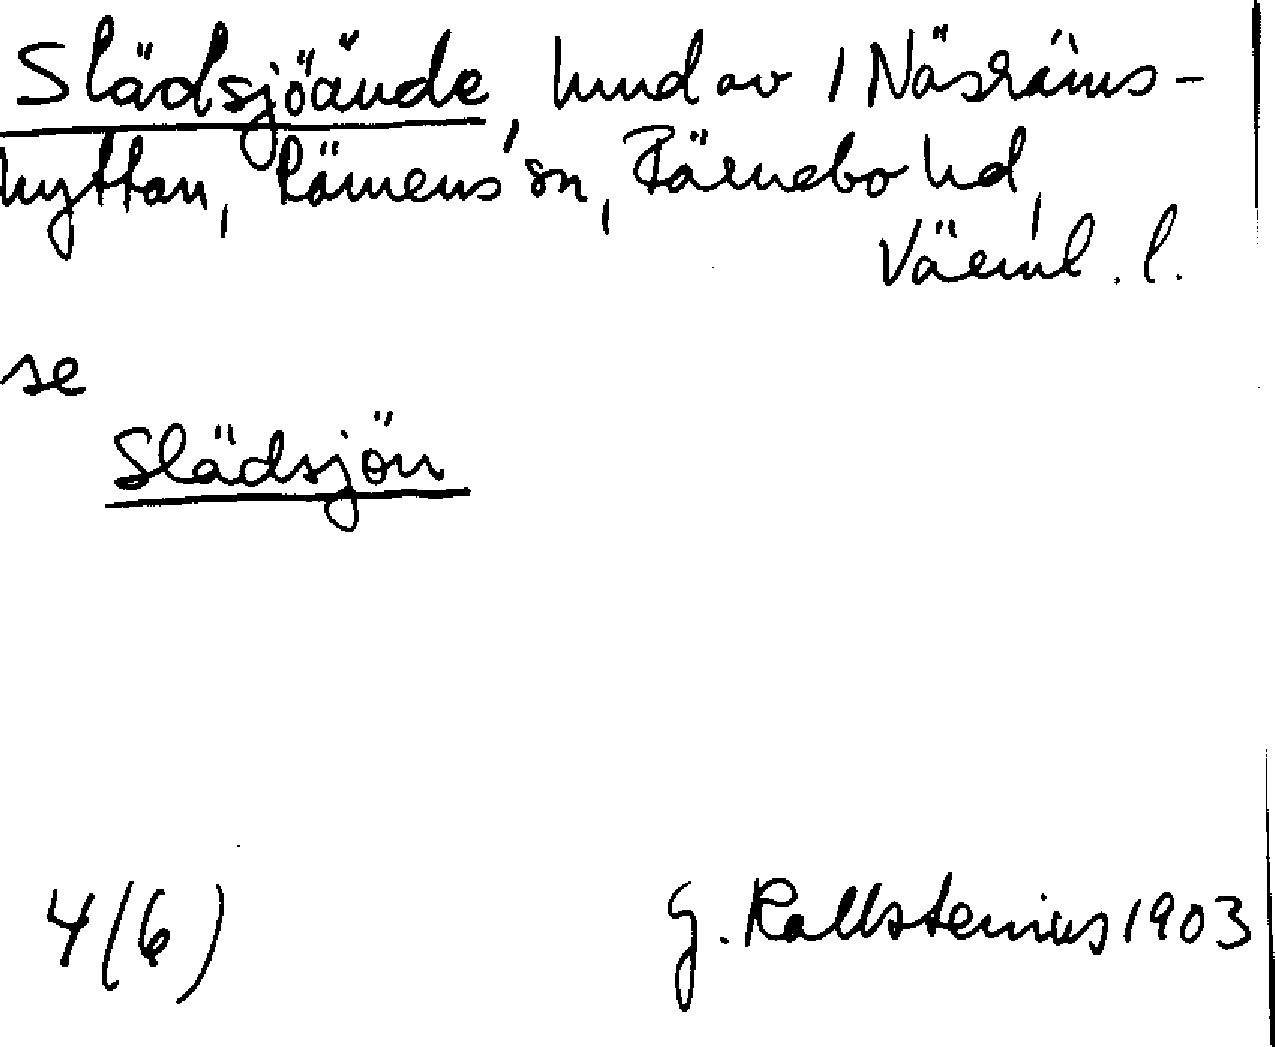 Slädsjöände, hmd av 1 Näsräms-
hyttan, Rämens sn, Färnebo hd,
Värml. l.
se
Slädsjön
4(6)
G. Kallstenius 1903